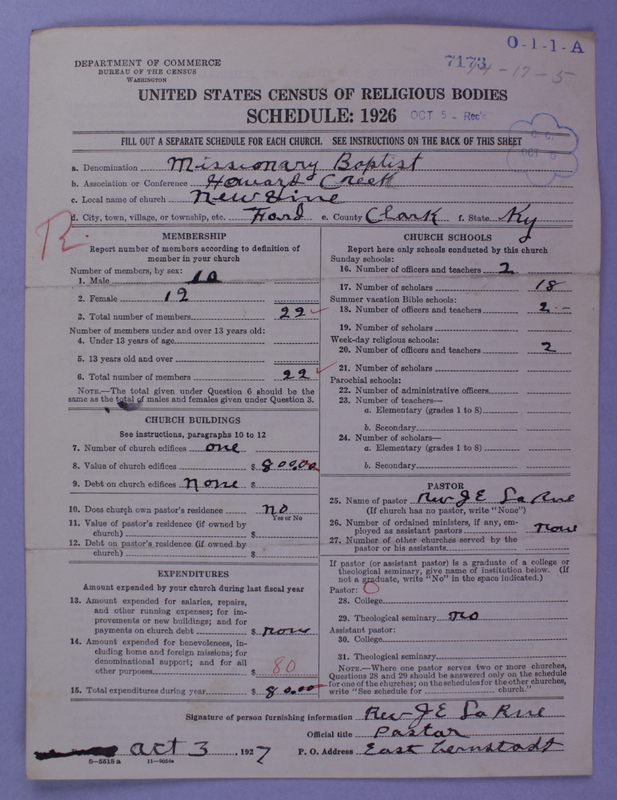 O-1-1-A
7173
17-5
DEPARTMENT OF COMMERCE
BUREAU OF THE CENSUS
WASHINGTON
UNITED STATES CENSUS OF RELIGIOUS BODIES
SCHEDULE: 1926
OCT 5 - Rec'd
FILL OUT A SEPARATE SCHEDULE FOR EACH CHURCH. SEE INSTRUCTIONS ON THE BACK OF THIS SHEET
a. Denomination Missionary Baptist
b. Association or Conference Howard Creek
c. Local name of church New Hine
d. City, town, village, or township, etc. Ford e. County Clark f. State Ky
R.
MEMBERSHIP
Report number of members according to definition of
member in your church
Number of members, by sex:
1. Male 10
2. Female 12
3. Total number of members 22
Number of members under and over 13 years old:
4. Under 13 years of age
5. 13 years old and over
6. Total number of members 22
NOTE.—The total given under Question 6 should be the
same as the total of males and females given under Question 3.
CHURCH BUILDINGS
See instructions, paragraphs 10 to 12
7. Number of church edifices one
8. Value of church edifices $ 800.00
9. Debt on church edifices none $
10. Does church own pastor's residence no
Yes or No
11. Value of pastor's residence (if owned by
church) $
12. Debt on pastor's residence (if owned by
church) $
EXPENDITURES
Amount expended by your church during last fiscal year
13. Amount expended for salaries, repairs,
and other running expenses; for im-
provements or new buildings; and for
payments on church debt $ none
14. Amount expended for benevolences, in-
cluding home and foreign missions; for
denominational support; and for all
other purposes $ 80
15. Total expenditures during year $ 80.00
CHURCH SCHOOLS
Report here only schools conducted by this church
Sunday schools:
16. Number of officers and teachers 2
17. Number of scholars 18
Summer vacation Bible schools:
18. Number of officers and teachers 2
19. Number of scholars
Week-day religious schools:
20. Number of officers and teachers 2
21. Number of scholars
Parochial schools:
22. Number of administrative officers
23. Number of teachers—
a. Elementary (grades 1 to 8)
b. Secondary
24. Number of scholars—
a. Elementary (grades 1 to 8)
b. Secondary
PASTOR
25. Name of pastor Rev J E LaRue
(If church has no pastor, write "None")
26. Number of ordained ministers, if any, em-
ployed as assistant pastors none
27. Number of other churches served by the
pastor or his assistants
If pastor (or assistant pastor) is a graduate of a college or
theological seminary, give name of institution below. (If
not a graduate, write "No" in the space indicated.)
Pastor: O
28. College
29. Theological seminary no
Assistant pastor:
30. College
31. Theological seminary
NOTE.—Where one pastor serves two or more churches,
Questions 28 and 29 should be answered only on the schedule
for one of the churches; on the schedules for the other churches,
write "See schedule for church."
Signature of person furnishing information Rev J E LaRue
Official title Pastor
oct 3, 1927 P. O. Address East Bernstadt
8-5518 a